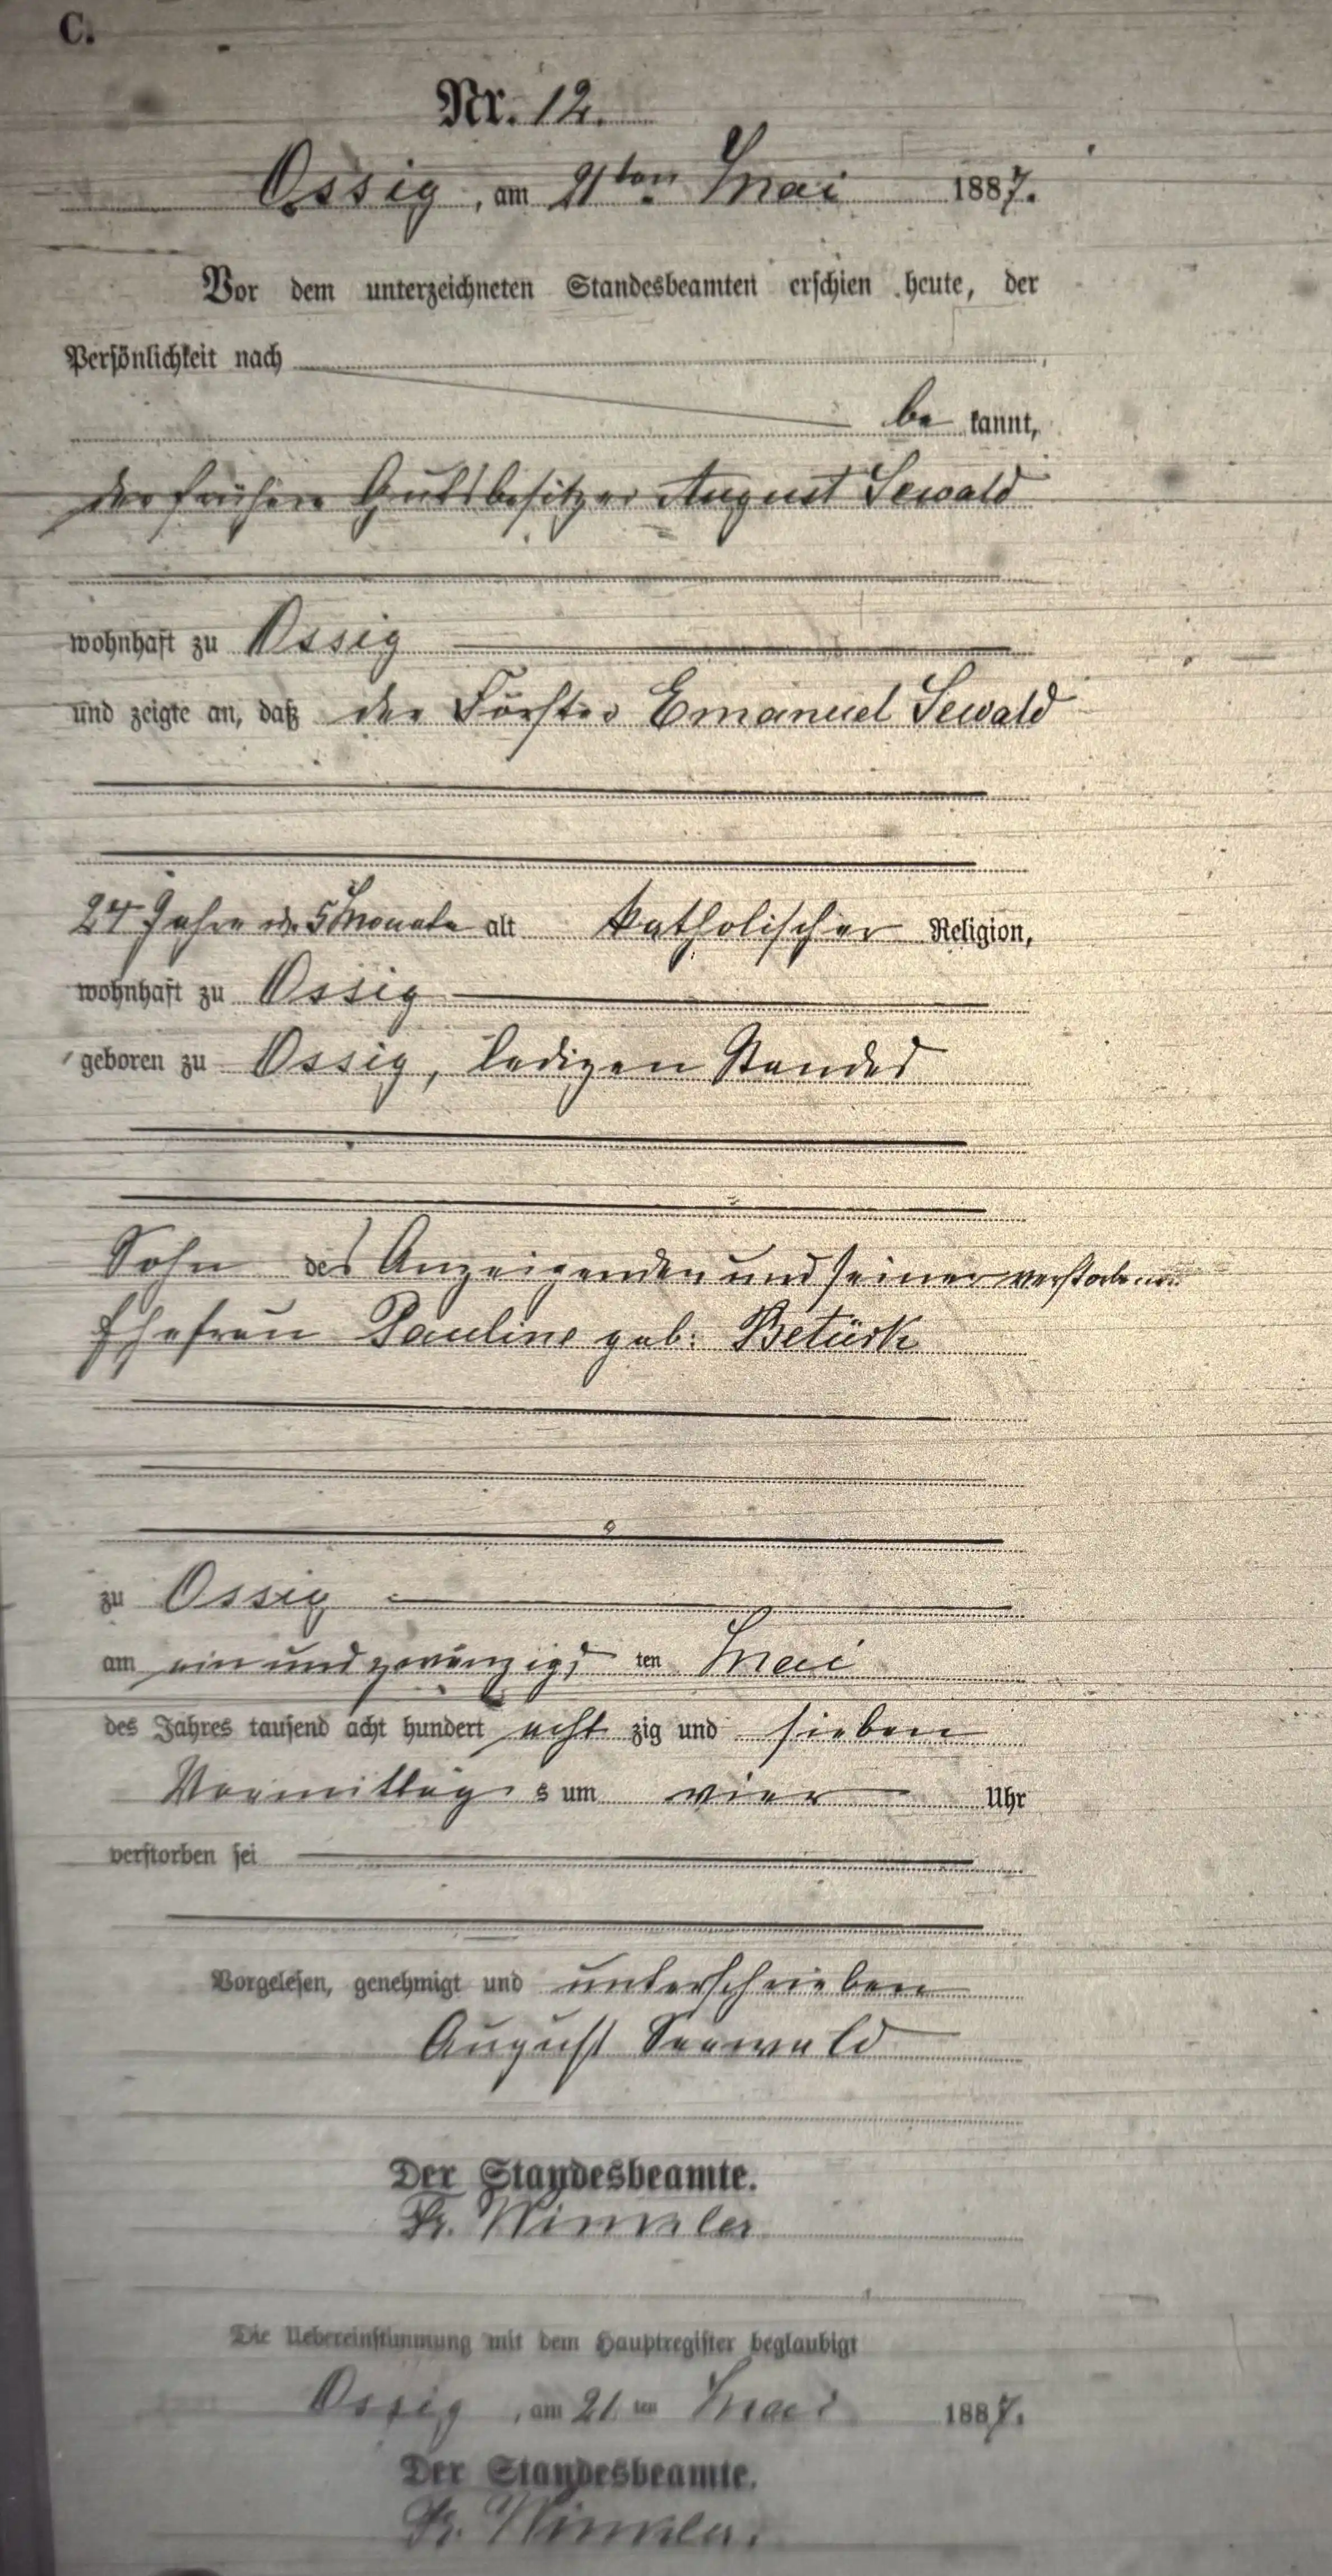 C.
Nr. 12.
Ossig, am 21ten Mai 1887.
Vor dem unterzeichneten Standesbeamten erschien heute, der
Persönlichkeit nach
be kannt,
der frühere Gutsbesitzer August Sewald
wohnhaft zu Ossig
und zeigte an, daß der Förster Emanuel Sewald
24 Jahre u. 5 Monate alt katholischer Religion,
wohnhaft zu Ossig
geboren zu Ossig, ledigen Standes
Sohn des Anzeigenden und seiner verstorbenen
Ehefrau Pauline geb. Betürk
zu Ossig
am ein und zwanzigs ten Mai
des Jahres tausend acht hundert acht zig und sieben
Vormittag s um vier Uhr
verstorben sei
Vorgelesen, genehmigt und unterschrieben
August Seewald
Der Standesbeamte.
Fr. Winkler
Die Uebereinstimmung mit dem Hauptregister beglaubigt
Ossig, am 21 ten Mai 1887.
Der Standesbeamte.
Fr. Winkler.